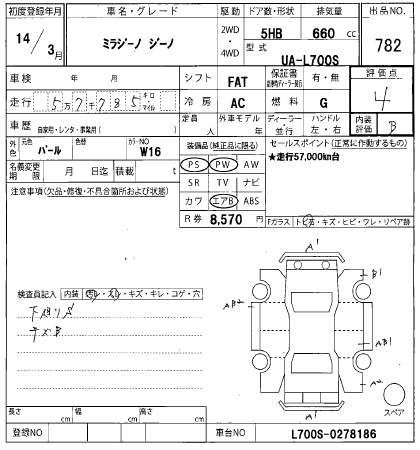 初度登録年月 車名・グレード 駆動 ドア数・形状 排気量 出品NO.
14/3月 ミラジーノ ジーノ 2WD・4WD 5HB 660 cc 782
型式 UA-L700S
車検 年 月 シフト FAT 保証書 有・無 評価点
走行 5万7千785 キロ マイル 冷房 AC 燃料 G 4
車歴 自家用・レンタ・事業用( ) 定員 人 外車モデル 年 ディーラー・並行 ハンドル 左・右 内装評価 B
外色 元色 パール 色替 カラーNO W16 装備品(純正品に限る) セールスポイント(正常に作動するもの)
名義変更期限 月 日迄 積載 t PS PW AW ★走行57,000km台
注意事項(欠品・修復・不具合箇所および状態) SR TV ナビ
カワ エアB ABS
R券 8,570 円 Fガラス
A1
B1
A2
AB1
A2
A1
スペア
検査員記入 内装 汚レ・スレ・キズ・キレ・コゲ・穴
下廻りサ
キズB
長さ cm 幅 cm 高さ cm
登録NO 車台NO L700S-0278186